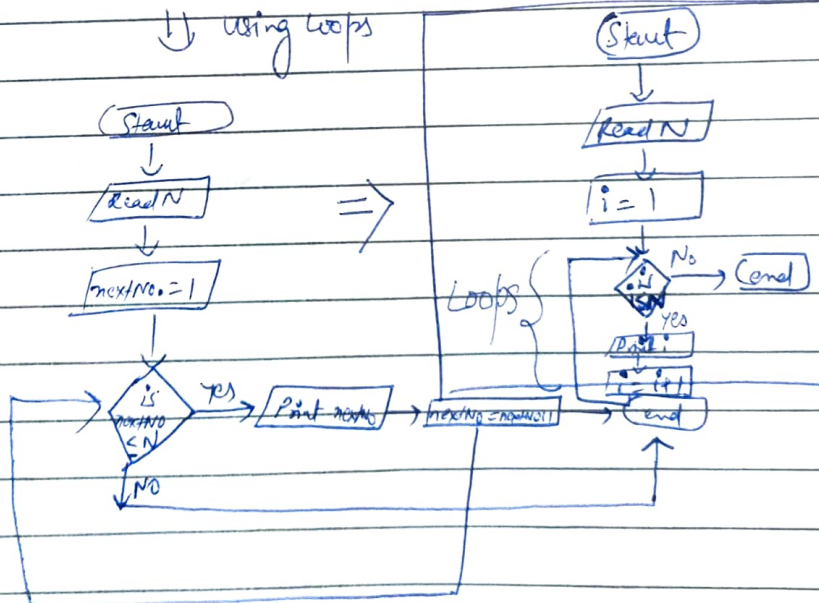 ⇓ using Loops
Start
Read N
nextNo. = 1
is
nextNo
≤ N
Yes
Print nextNo
NO
end
⇒
Start
Read N
i = 1
Loops
is
i ≤ N
No
end
Yes
Print i
i = i+1